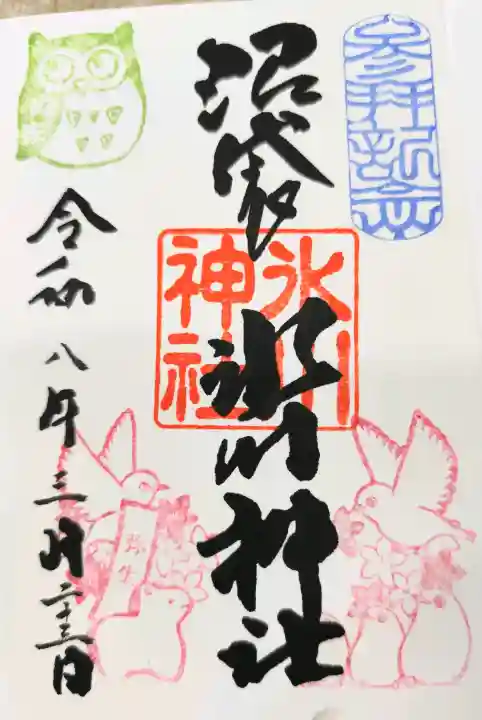 参拝記念
沼袋
氷川神社
氷川
神社
令和八年三月二十三日
弥生